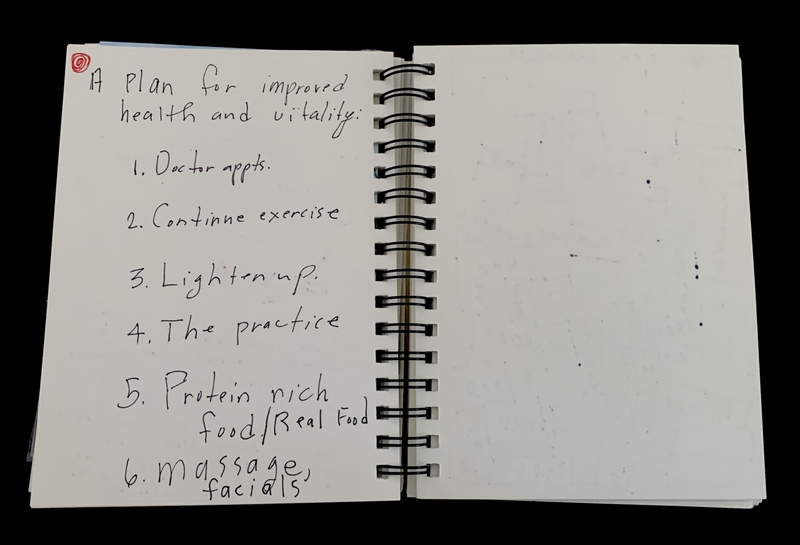 A Plan for improved
health and vitality:
1. Doctor appts.
2. Continue exercise
3. Lighten up.
4. The practice
5. Protein rich
food/Real Food
6. massage,
facials